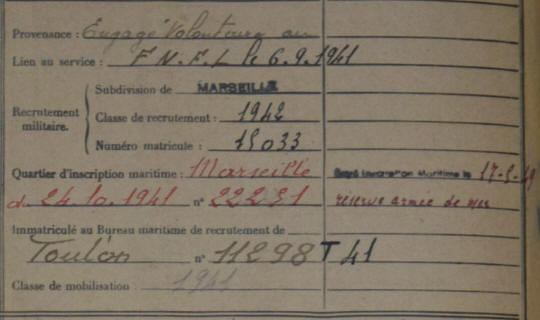 Provenance : Engagé Volontaire au
Lien au service : F.N.F.L le 6.9.1941
Subdivision de MARSEILLE
Recrutement militaire.
Classe de recrutement : 1942
Numéro matricule : 15033
Quartier d'inscription maritime : Marseille
Maritime le 17-5-49
d. 24.10.1941 n° 22231
réserve armée de mer
Immatriculé au Bureau maritime de recrutement de
Toulon n° 11298 T 41
Classe de mobilisation : 1941